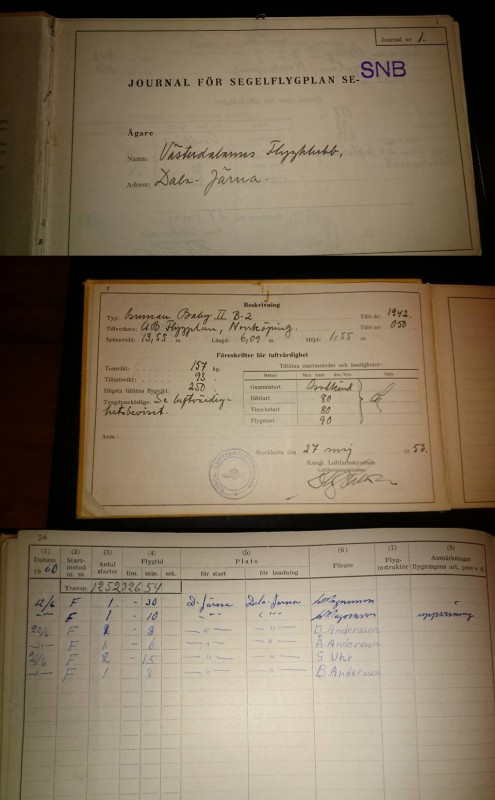 1
Journal nr 1.
JOURNAL FÖR SEGELFLYGPLAN SE-SNB
Ägare
Namn: Västerdalarnes Flygklubb,
Adress: Dala-Järna.
2
Beskrivning
Typ: Grunau Baby II B-2
Tillv.år: 1942
Tillverkare: AB Flygplan, Norrköping.
Tillv.nr: 050
Spännvidd: 13,55 m. Längd: 6,09 m. Höjd: 1,55 m.
Föreskrifter för luftvärdighet
Tomvikt: 157 kg.
Tillsatsvikt: 93
Högsta tillåtna flygvikt: 250
Tyngdpunktsläge: Se luftvärdig-
hetsbeviset.
Tillåtna startmetoder och hastigheter:
Gummistart
Bilstart 80
Vinschstart 80
Flygstart 90
Anm.:
Stockholm den 27 maj 1953.
Kungl Luftfartsstyrelsen
Luftfartsinspektionen
58
(1) (2) (3) (4) (5) (6) (7) (8)
Datum 1960 Startmetod m. m. Antal starter Flygtid tim. min. sek. Plats för start för landning Förare Flyginstruktör Anmärkningar
Transp. 1252 326 54
12/6 F 1 - 30 D-Järna Dala-Järna
F 1 - 10
F 2 - 8 B Andersson
F 1 - 6 Andersson
F 2 - 15 S Uhr
F 1 8 B Andersson